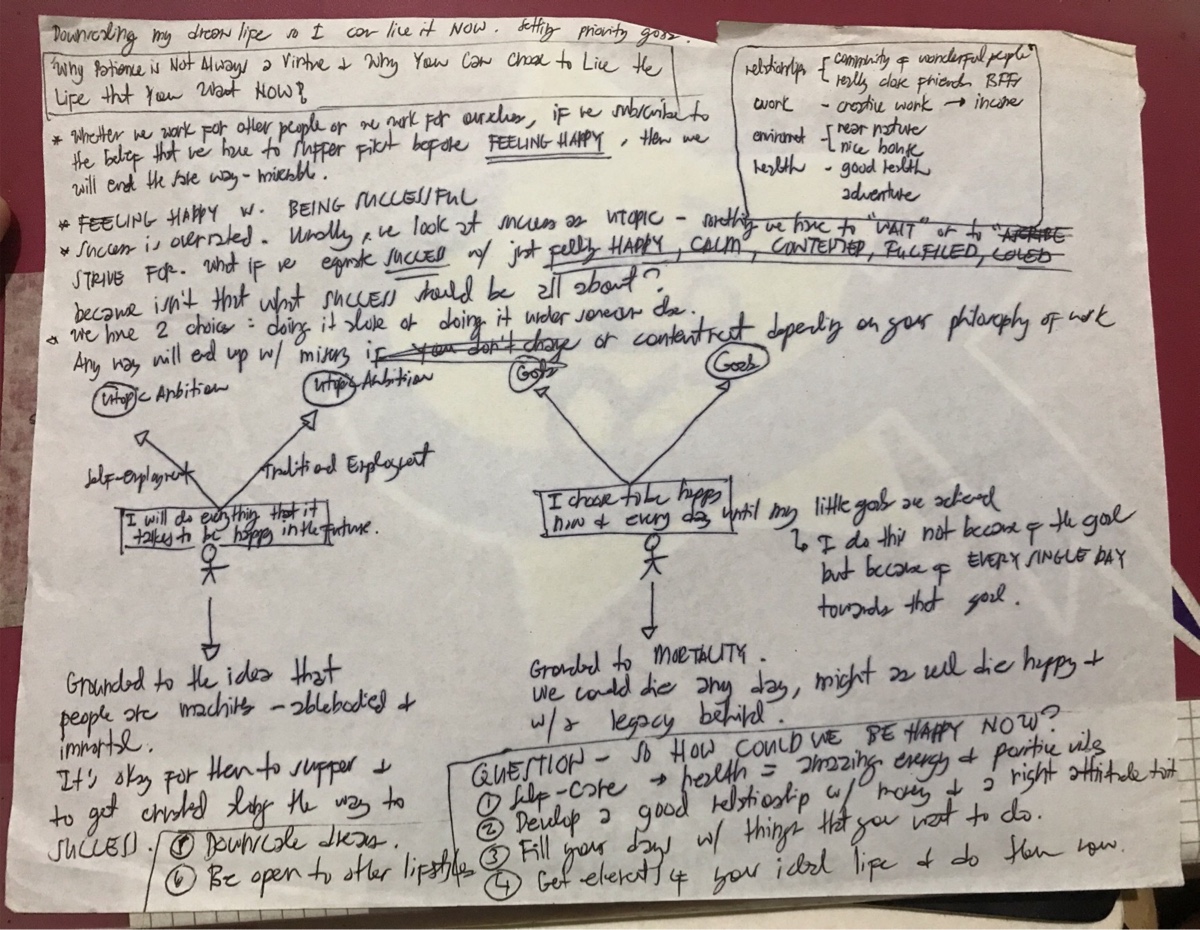 Downscaling my dream life so I can live it NOW. Setting priority goals.
Why Patience is Not Always a Virtue + Why You Can Choose to Live the
Life that You Want NOW?
relationships - community of wonderful people
really close friends BFFs
work - creative work → income
near nature
nice house
health - good health
adventure
* Whether we work for other people or we work for ourselves, if we subscribe to
the belief that we have to suffer first before FEELING HAPPY, then we
will end the same way - miserable.
* FEELING HAPPY vs. BEING SUCCESSFUL
* Success is overrated. Usually, we look at success as utopic - something we have to "WAIT" or to
STRIVE FOR. What if we equate SUCCESS w/ just feeling HAPPY, CALM, CONTENTED, FULFILLED, LOVED
because isn't that what SUCCESS should be all about?
* We have 2 choices: doing it alone or doing it under someone else.
Any way will end up w/ misery if you don't change or contentment depending on your philosophy of work
Utopic Ambition
Utopic Ambition
Goals
Goals
Self-employment
Traditional Employment
I will do everything that it
takes to be happy in the future.
I choose to be happy
now & every day until my little goals are achieved
↳ I do this not because of the goal
but because of EVERY SINGLE DAY
towards that goal.
Grounded to the idea that
people are machines - ablebodied &
immortal.
It's okay for them to suffer &
to get crushed along the way to
SUCCESS.
Grounded to MORTALITY.
We could die any day, might as well die happy &
w/ a legacy behind.
QUESTION - SO HOW COULD WE BE HAPPY NOW?
① Self-Care → health = amazing energy & positive vibes
② Develop a good relationship w/ money & a right attitude to it
③ Fill your days w/ things that you want to do.
④ Get elements of your ideal life & do them now.
⑤ Downscale dreams.
⑥ Be open to other lifestyles